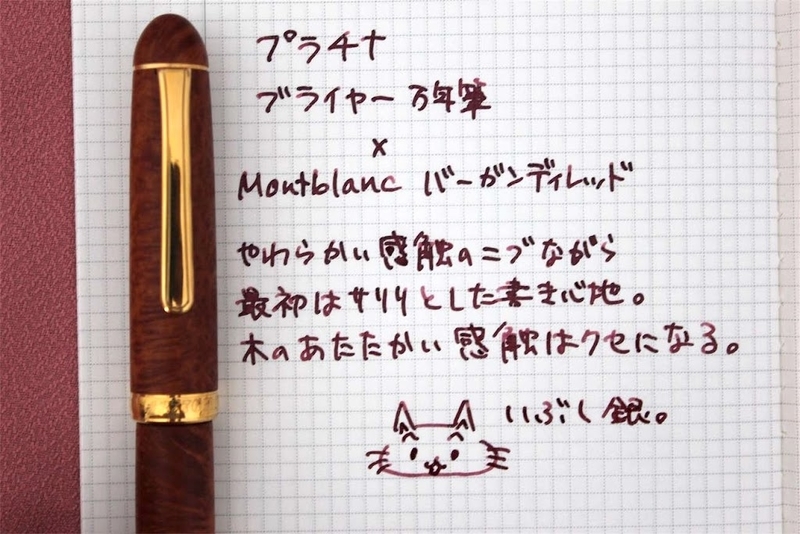 プラチナ
ブライヤー 万年筆
×
Montblanc バーガンディレッド
やわらかい感触のニブながら
最初はサリリとした書き心地。
木のあたたかい感触はクセになる。
いぶし銀。